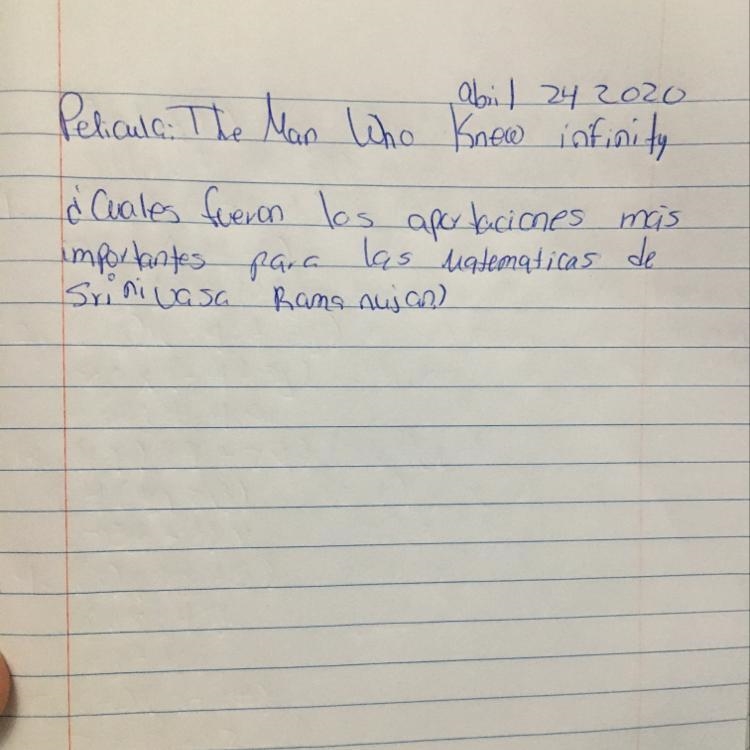 abril 24 2020
Pelicula: The Man Who Knew infinity
¿Cuales fueron las aportaciones más
importantes para las Matematicas de
Srinivasa Ramanujan?